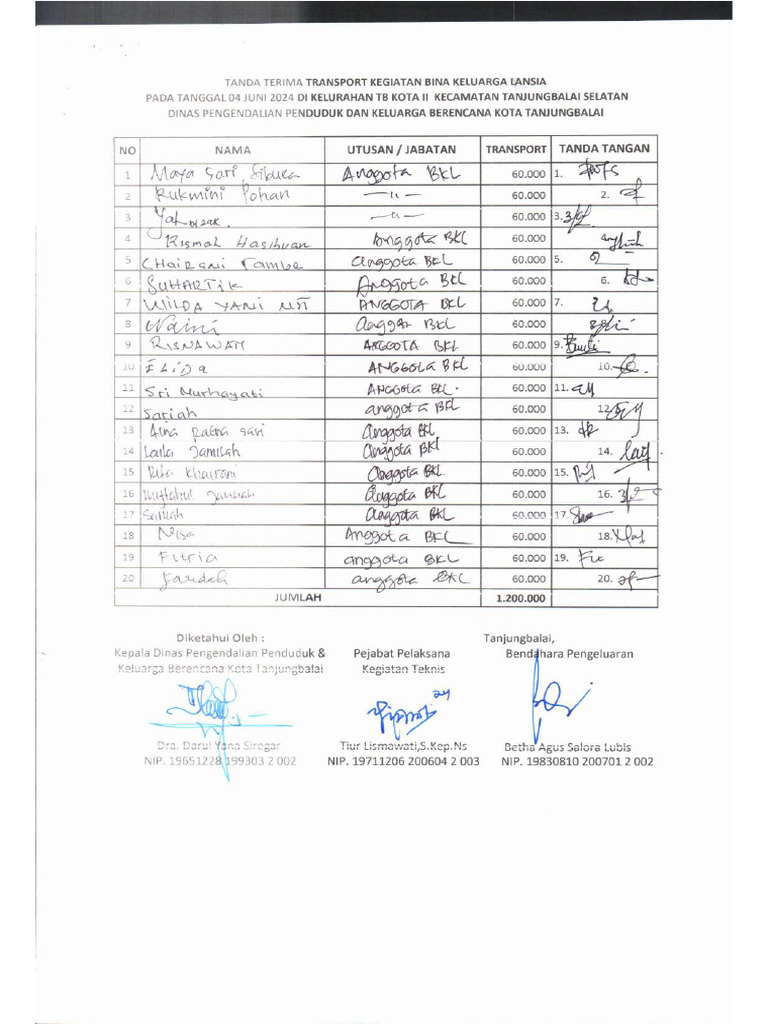 TANDA TERIMA TRANSPORT KEGIATAN BINA KELUARGA LANSIA
PADA TANGGAL 04 JUNI 2024 DI KELURAHAN TB KOTA II KECAMATAN TANJUNGBALAI SELATAN
DINAS PENGENDALIAN PENDUDUK DAN KELUARGA BERENCANA KOTA TANJUNGBALAI
NO NAMA UTUSAN / JABATAN TRANSPORT TANDA TANGAN
1 Maya Sari Anggota BKL 60.000 1.
2 Rukmini Pohan —〃— 60.000 2.
3 —〃— 60.000 3.
4 Rismah Hasibuan Anggota BKL 60.000
5 CHAIRANI Anggota BKL 60.000 5.
6 SUHARTIK Anggota BKL 60.000 6.
7 WILDA YANI NST ANGGOTA BKL 60.000 7.
8 Anggota BKL 60.000
9 RISNAWATI ANGGOTA BKL 60.000 9.
10 ELIDA ANGGOTA BKL 60.000 10.
11 Sri Nurhayati ANGGOTA BKL. 60.000 11.
12 Sariah anggota BKL 60.000 12.
13 Ratna Sari anggota BKL 60.000 13.
14 Laila Jamilah anggota BKL 60.000 14.
15 Khairani anggota BKL 60.000 15.
16 Miftahul Jannah anggota BKL 60.000 16.
17 anggota BKL 60.000 17.
18 Nisa Anggota BKL 60.000 18.
19 Fitria anggota BKL 60.000 19.
20 Faridah anggota BKL 60.000 20.
JUMLAH 1.200.000
Diketahui Oleh : Tanjungbalai,
Kepala Dinas Pengendalian Penduduk & Pejabat Pelaksana Bendahara Pengeluaran
Keluarga Berencana Kota Tanjungbalai Kegiatan Teknis
Dra. Darul Yana Siregar Tiur Lismawati,S.Kep.Ns Betha Agus Salora Lubis
NIP. 19651228 199303 2 002 NIP. 19711206 200604 2 003 NIP. 19830810 200701 2 002